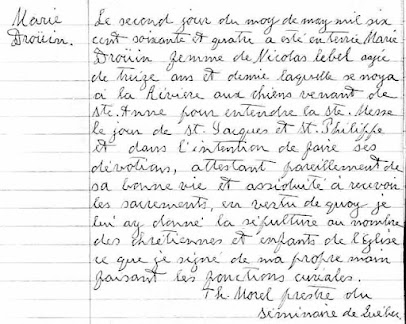 Marie
Droüin.
Le second jour du moy de may mil six
cent soixante et quatre a esté enterrée Marie
Droüin femme de Nicolas lebel agée
de treize ans et demie laquelle se noya
a la Rivière aux chiens venant de
ste. Anne pour entendre la ste. Messe
le jour de St. Jacques et St. Philippe
et dans l'intention de faire ses
dévotions, attestant pareillement de
sa bonne vie et assiduité à recevoir
les sacrements, en vertu de quoy je
lui ay donné la sépulture au nombre
des chretiennes et enfants de l'Eglise
ce que je signé de ma propre main
faisant les fonctions curiales.
Th. Morel prestre du
séminaire de Québec